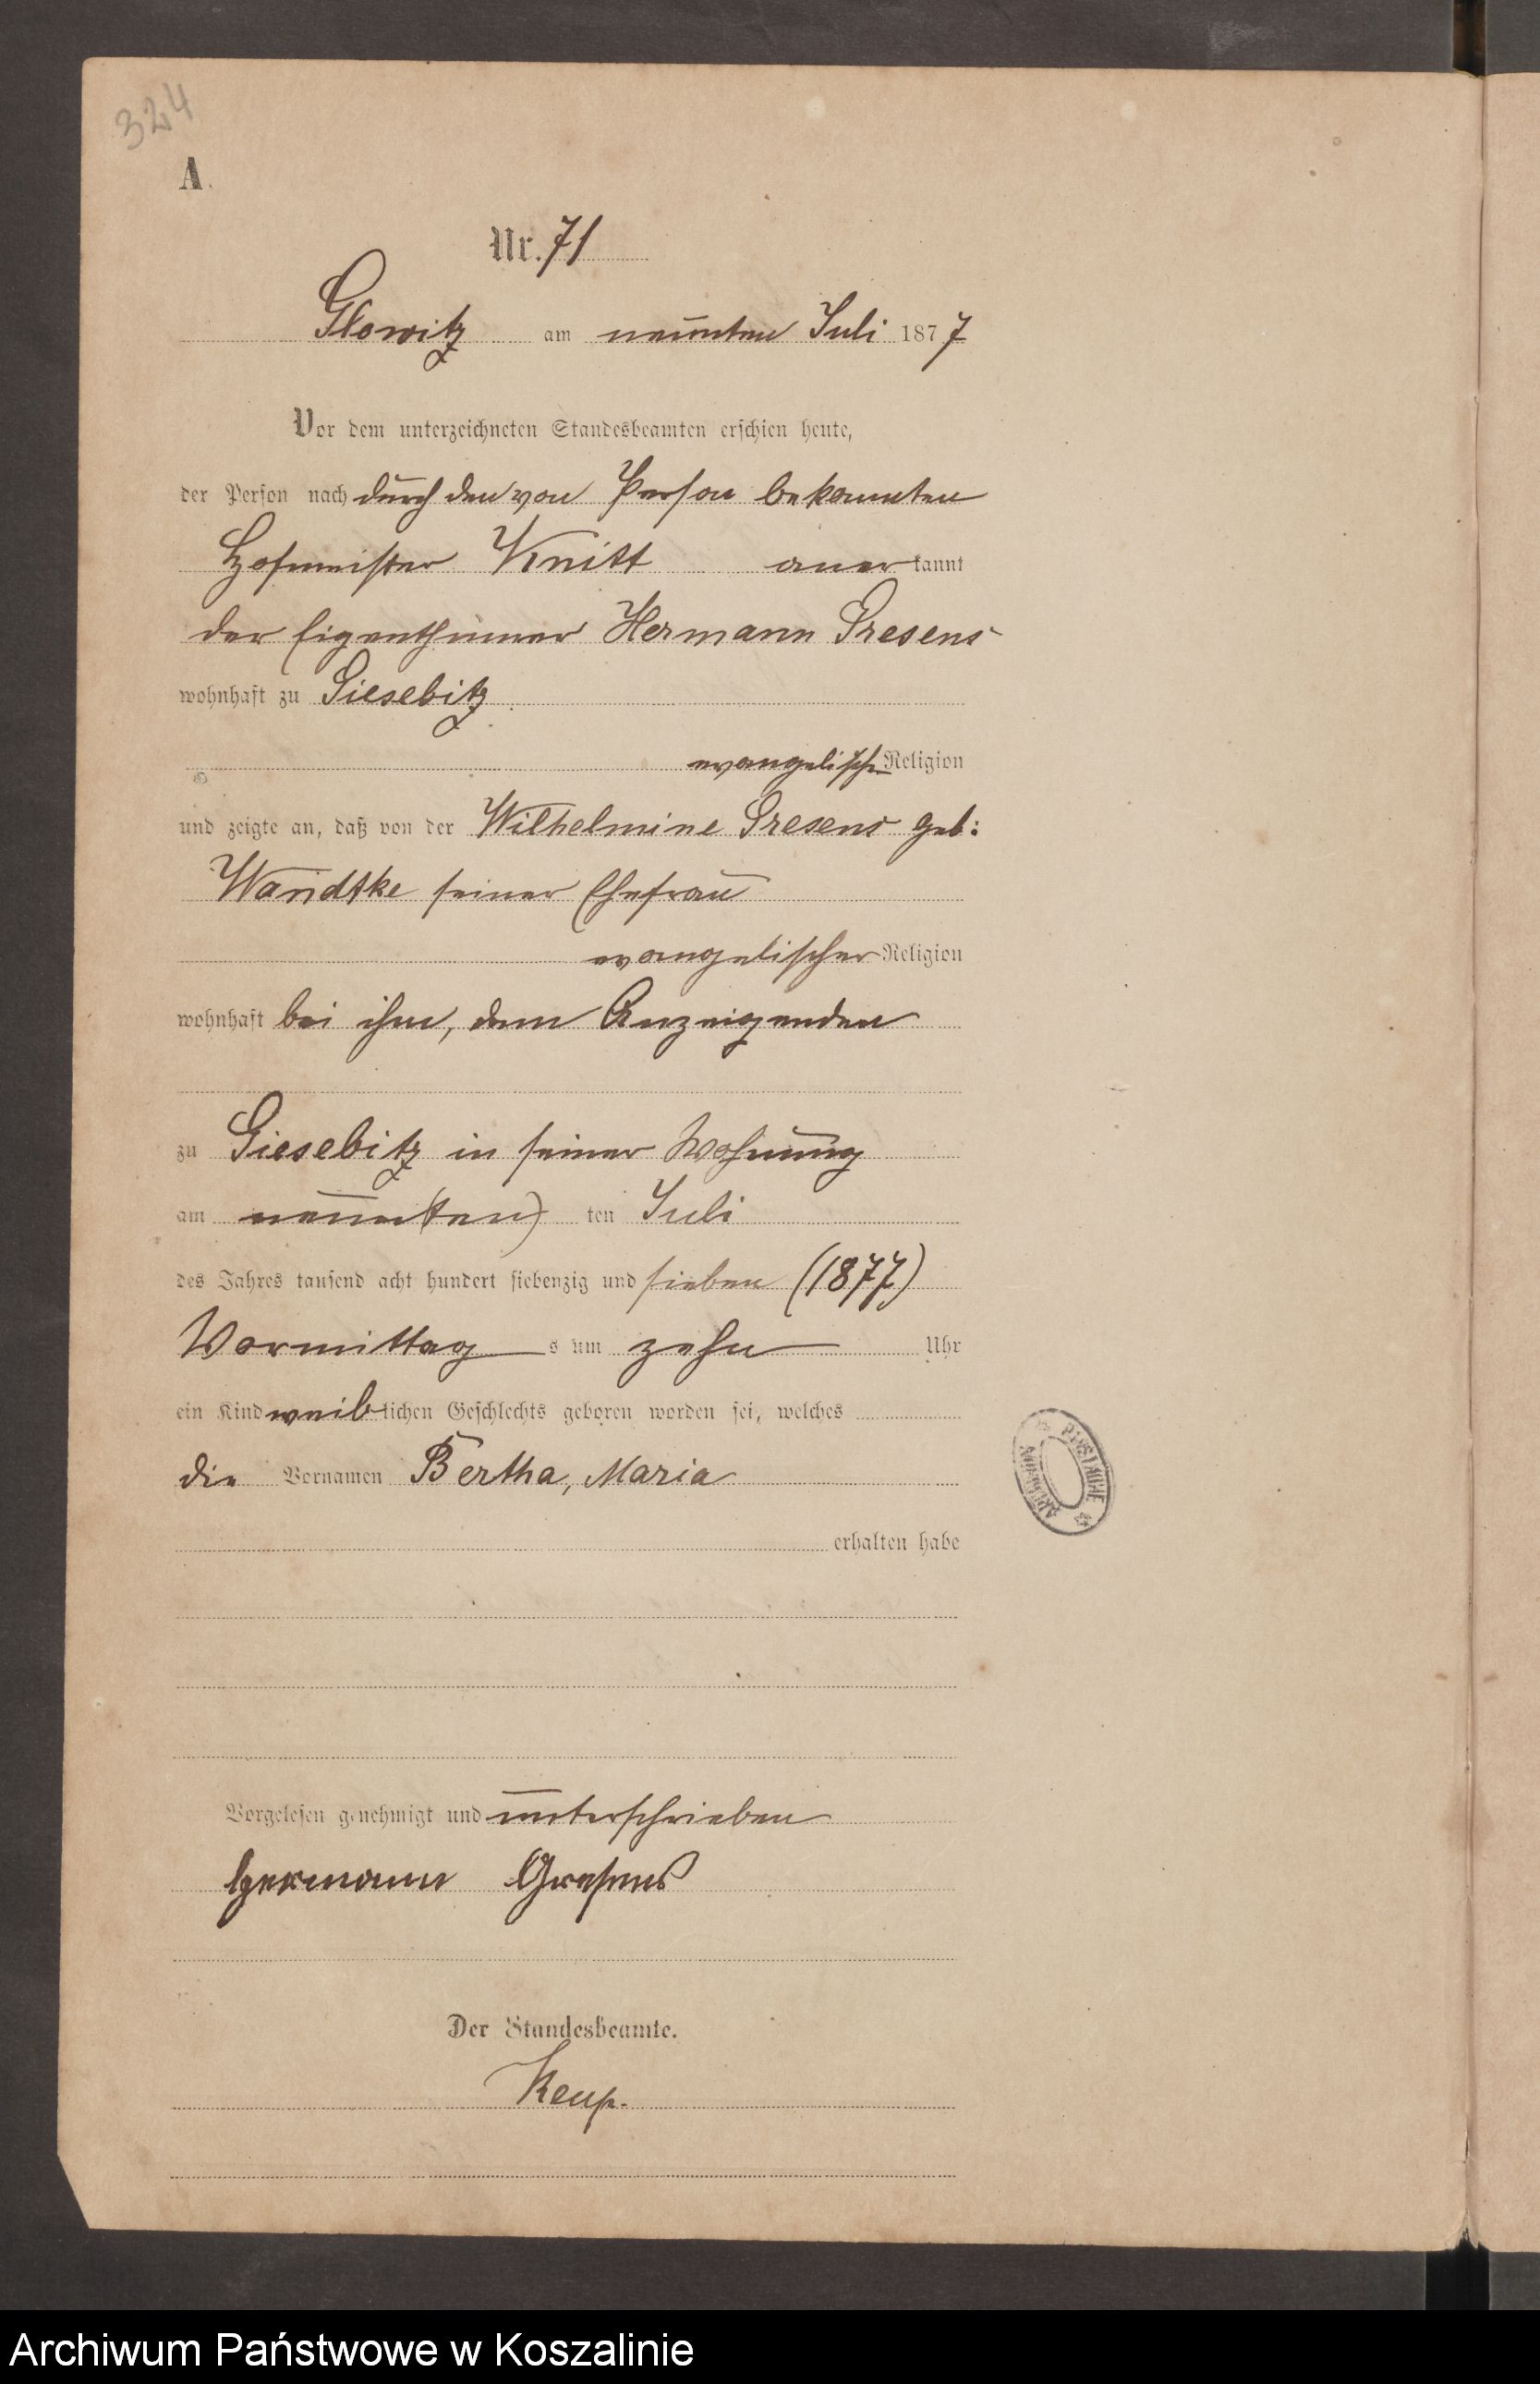 324
A.
Nr. 71
Glowitz am neunten Juli 1877
Vor dem unterzeichneten Standesbeamten erschien heute,
der Person nach durch den von Person bekannten
Hofmeister Knitt anerkannt
der Eigenthümer Hermann Gresens
wohnhaft zu Giesebitz
evangelischer Religion
und zeigte an, daß von der Wilhelmine Gresens geb:
Wandtke seiner Ehefrau
evangelischer Religion
wohnhaft bei ihm, dem Anzeigenden
zu Giesebitz in seiner Wohnung
am neun(ten) ten Juli
des Jahres tausend acht hundert siebenzig und sieben (1877)
Vormittags um zehn Uhr
ein Kind weiblichen Geschlechts geboren worden sei, welches
die Vornamen Bertha, Maria
erhalten habe
Vorgelesen genehmigt und unterschrieben
Hermann Gresens
Der Standesbeamte.
Keup.
Archiwum Państwowe w Koszalinie